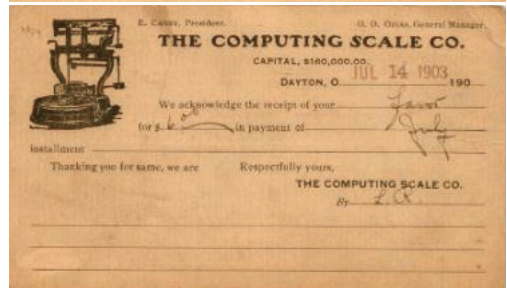 E. CANBY, President. O. O. OZIAS, General Manager.
THE COMPUTING SCALE CO.
CAPITAL, $160,000.00.
DAYTON, O. JUL 14 1903 190
We acknowledge the receipt of your favor
for $ 6.00 in payment of July
installment
Thanking you for same, we are Respectfully yours,
THE COMPUTING SCALE CO.
By L. R